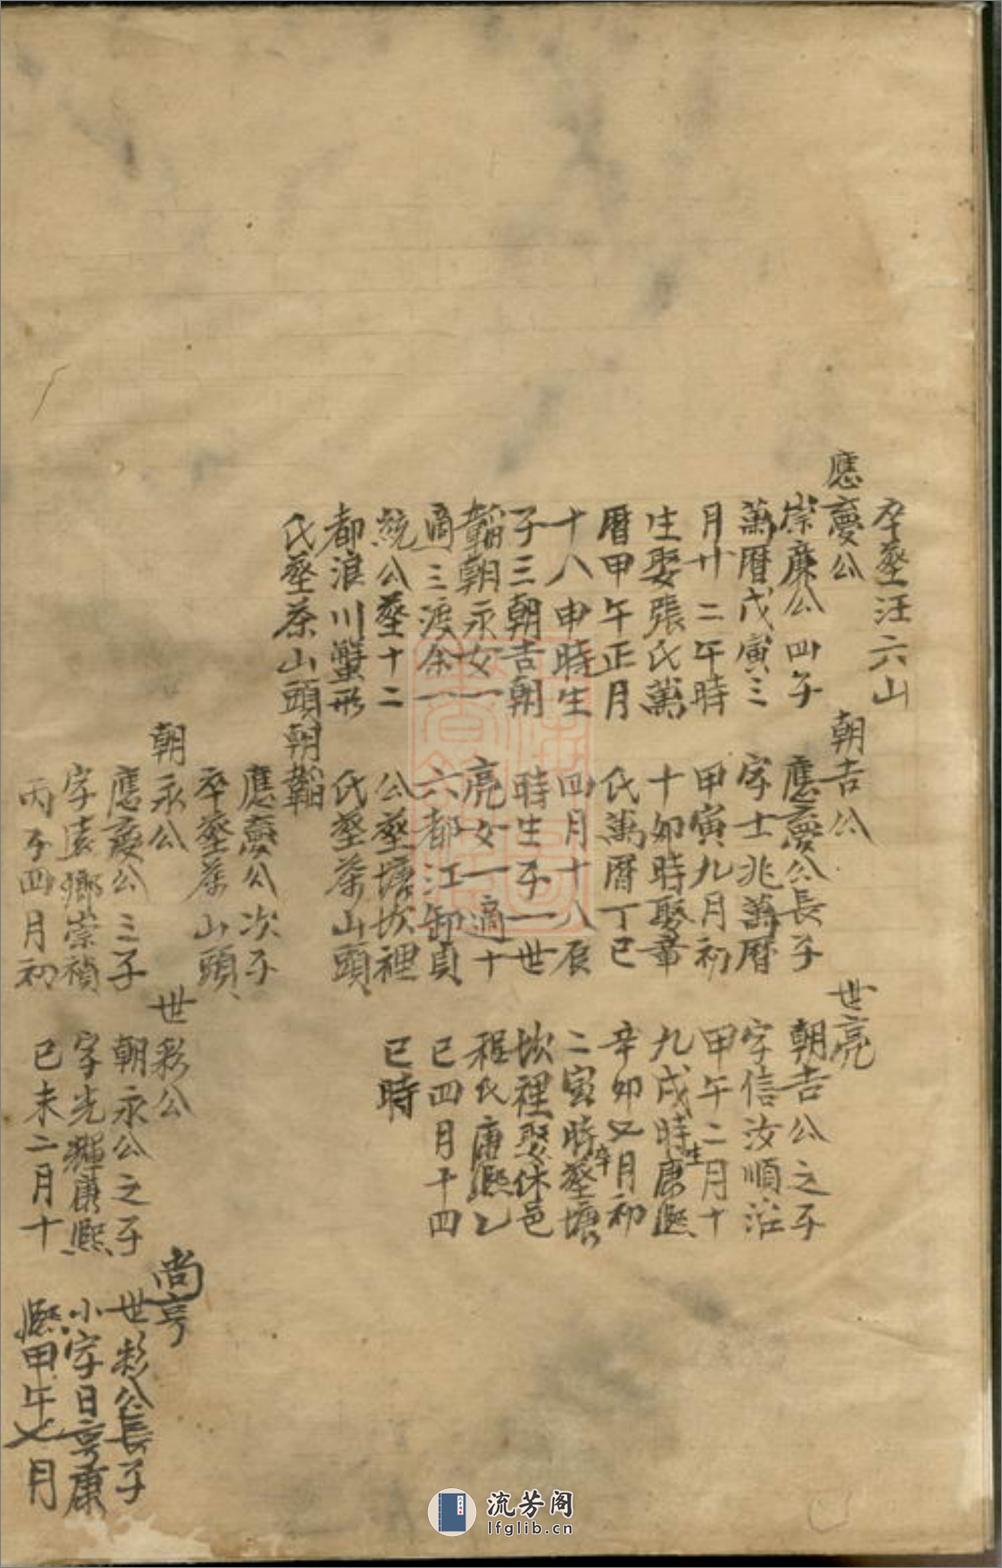 卒塟汪六山
應慶公
崇廉公四子
萬曆戊寅三
月廿二午時
生娶張氏萬
曆甲午正月
十八申時生
子三朝吉朝
韜朝永女一
適三渡余一
統公塟十二
都浪川蟹形
氏塟茶山頭
朝吉公
應慶公長子
字士兆萬曆
甲寅九月初
十卯時娶章
氏萬曆丁巳
四月十八辰
時生子一世
亮女一適十
六都江卸貞
公塟塘坎裡
氏塟茶山頭
朝韜
應慶公次子
卒塟茶山頭
朝永公
應慶公三子
字 鄉崇禎
丙子四月初
世亮
朝吉公之子
字信汝順治
甲午二月十
九戌時生康熙
辛卯又月初
二寅時卒塟塘
坎裡娶休邑
程氏康熙乙
巳四月十四
巳時
世彩公
朝永公之子
字光輝康熙
己未二月十
尚亨
世彩公長子
小字日亨康
熙甲午七月
流芳阁
lfglib.cn